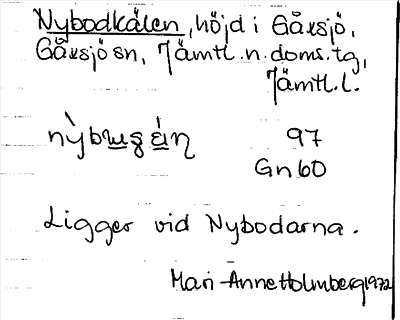 Nybodkälen, höjd i Gåxsjö,
Gåxsjö sn, Jämtl. n. doms. tg,
Jämtl. l.
97
Gn 60
Ligger vid Nybodarna.
Mari-Anne Holmberg 1972